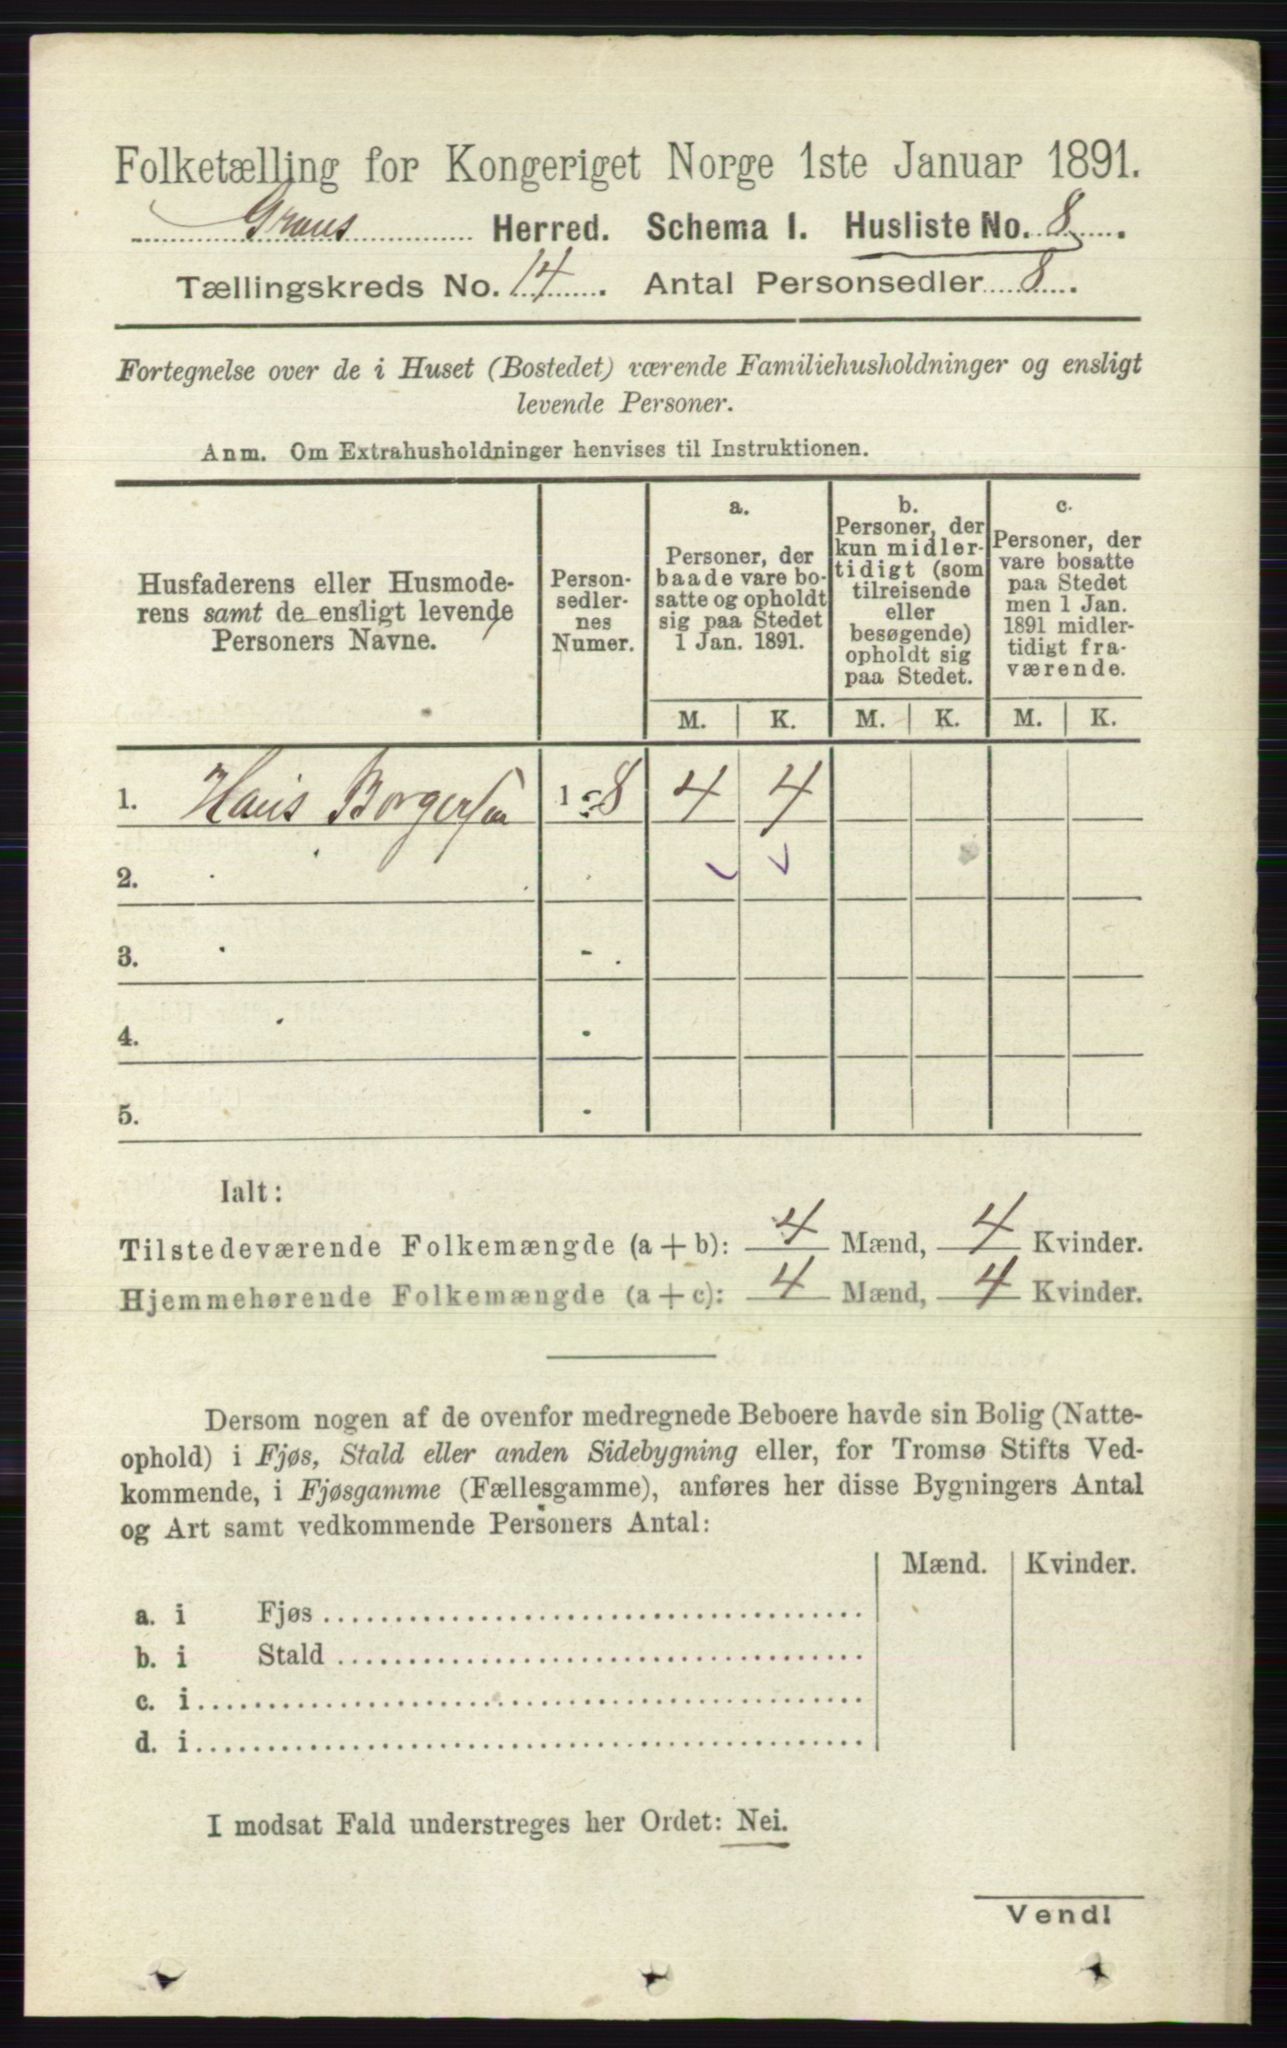 Folketælling for Kongeriget Norge 1ste Januar 1891.
Grans Herred. Schema I. Husliste No. 8.
Tællingskreds No. 14. Antal Personsedler 8.
Fortegnelse over de i Huset (Bostedet) værende Familiehusholdninger og ensligt
levende Personer.
Anm. Om Extrahusholdninger henvises til Instruktionen.
Husfaderens eller Husmode-
rens samt de ensligt levende
Personers Navne.
Person-
sedler-
nes
Numer.
a.
Personer, der
baade vare bo-
satte og opholdt
sig paa Stedet
1 Jan. 1891.
b.
Personer, der
kun midler-
tidigt (som
tilreisende
eller
besøgende)
opholdt sig
paa Stedet.
c.
Personer, der
vare bosatte
paa Stedet
men 1 Jan.
1891 midler-
tidigt fra-
værende.
M. K. M. K. M. K.
1. Hans Borgersen 1-8 4 4
2.
3. -
4. -
5. -
Ialt:
Tilstedeværende Folkemængde (a + b): 4 Mænd, 4 Kvinder.
Hjemmehørende Folkemængde (a + c): 4 Mænd, 4 Kvinder.
Dersom nogen af de ovenfor medregnede Beboere havde sin Bolig (Natte-
ophold) i Fjøs, Stald eller anden Sidebygning eller, for Tromsø Stifts Ved-
kommende, i Fjøsgamme (Fællesgamme), anføres her disse Bygningers Antal
og Art samt vedkommende Personers Antal:
Mænd. Kvinder.
a. i Fjøs
b. i Stald
c. i
d. i
I modsat Fald understreges her Ordet: Nei.
Vend!